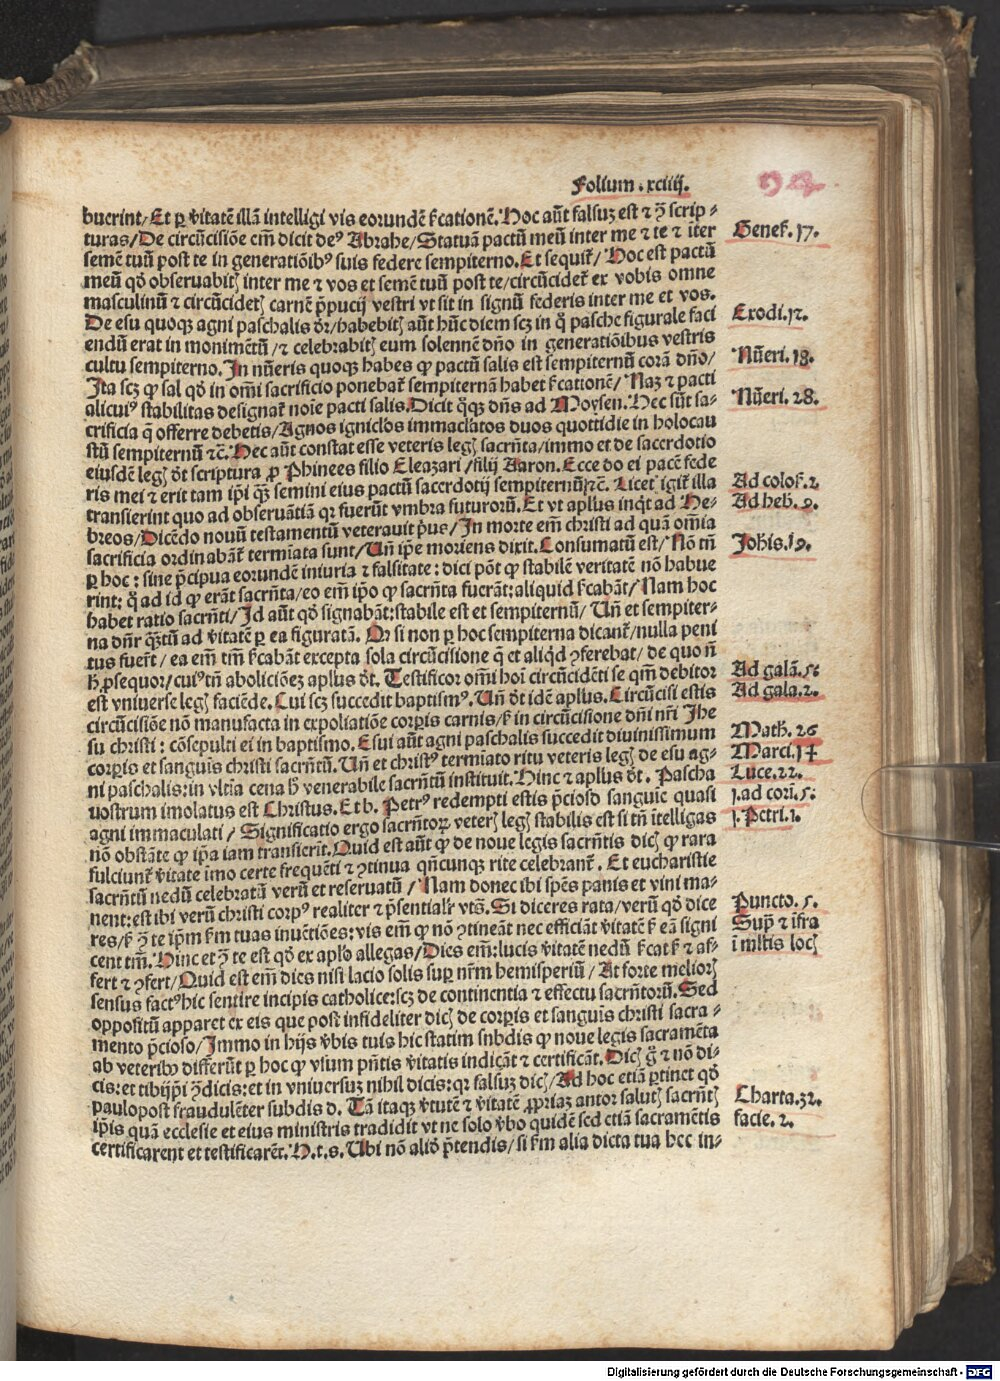 Folium . xciiij.
94
buerint/Et ꝑ v̄itatē illā intelligi vis eorundē s̄icationē. Hoc aūt falsuꝫ est ⁊ ꝯ̄ scrip⸗
turas/De circūcisiōe em̄ dicit deꝰ Abrahe/Statuā pactū meū inter me ⁊ te ⁊ iter
semē tuū post te in generatiōibꝰ suis federe sempiterno. Et sequit᷑/ Hoc est pactū
meū qd̄ obseruabitꝭ inter me ⁊ vos et semē tuū post te/circūcidet᷑ ex vobis omne
masculinū ⁊ circūcidetꝭ carnē p̄pucij vestri vt sit in signū federis inter me et vos.
De esu quoqꝫ agni paschalis dr̄/habebitꝭ aūt hūc diem scꝫ in q̄ pasche figurale faci
endū erat in monimētū /⁊ celebrabitꝭ eum solennē dn̄o in generatiōibus vestris
cultu sempiterno. In nūeris quoqꝫ habes ꝙ pactū salis est sempiternū corā dn̄o/
Ita scꝫ ꝙ sal qd̄ in om̄i sacrificio ponebat᷑ sempiternā habet s̄icationē/ Naꝫ ⁊ pacti
alicuiꝰ stabilitas designat᷑ noīe pacti salis. Dicit q̄qꝫ dn̄s ad Moysen. Hec sūt sa⸗
crificia q̄ offerre debetis/Agnos īgniclōs immaclatos duos quottidie in holocau
stū sempiternū ⁊c̄. Hec aūt constat esse veteris legꝭ sacrn̄ta/immo et de sacerdotio
eiusdē legꝭ dt̄ scriptura ꝓ Phinees filio Eleazari /filij Aaron. Ecce do ei pacē fede
ris mei ⁊ erit tam ip̄i qꝫ̄ semini eius pactū sacerdotij sempiternū⁊c̄. Licet igit᷑ illa
transierint quo ad obseruātiā qꝛ fuerūt vmbra futuroꝝ. Et vt apl̄us inq̄t ad He⸗
breos/Dicēdo nouū testamentū veterauit p̄us/In morte em̄ christi ad quā om̄ia
sacrificia ordinabāt᷑ termīata sunt/Un̄ ip̄e moriens dixit. Consumatū est/ Nō tn̄
ꝑ hoc : sine p̄cipua eorundē iniuria ⁊ falsitate : dici pōt ꝙ stabilē veritatē nō habue
rint: q̄ ad id ꝙ erāt sacrn̄ta/eo em̄ ip̄o ꝙ sacrn̄ta fuerāt: aliquid s̄icabāt/ Nam hoc
habet ratio sacrn̄ti/ Id aūt qd̄ signabāt: stabile est et sempiternū/ Un̄ et sempiter⸗
na dn̄r qꝫ̄tū ad v̄itatē ꝑ ea figuratā. Qꝛ si non ꝑ hoc sempiterna dicant᷑/nulla peni
tus fuer̄t / ea em̄ tm̄ s̄icabāt excepta sola circūcisione q̄ et aliqd̄ ꝯferebat/ de quo n̄
h̄ ꝓsequor/cuiꝰ tn̄ aboliciōeꝫ apl̄us dt̄. Testificor om̄i hoī circūcidēti se qm̄ debitor
est vniuerse legꝭ faciēde. Cui scꝫ succedit baptismꝰ. Un̄ dt̄ idē apl̄us. Circūcisi estis
circūcisiōe nō manufacta in expoliatiōe corꝑis carnis/s̄ in circūcisione dn̄i nr̄i Ihe
su christi : cōsepulti ei in baptismo. Esui aūt agni paschalis succedit diuinissimum
corꝑis et sanguis christi sacrn̄tū. Un̄ et christꝰ termīato ritu veteris legꝭ de esu ag⸗
ni paschalis: in vltīa cena h̄ venerabile sacrn̄tū instituit. Hinc ⁊ apl̄us dt̄ . Pascha
nostrum imolatus est Christus. Et b. Petrꝰ redempti estis p̄cioso sanguīe quasi
agni immaculati / Significatio ergo sacrn̄toꝝ veterꝭ legꝭ stabilis est si tn̄ ītelligas
nō obstāte ꝙ ip̄a iam transierīt. Quid est aūt ꝙ de noue legis sacrn̄tis dicꝭ ꝙ rara
fulciunt᷑ v̄itate imo certe frequēti ⁊ ꝯtinua qn̄cunqꝫ rite celebrant᷑ . Et eucharistie
sacrn̄tū nedū celebratū verū et reseruatū / Nam donec ibi spēs panis et vini ma⸗
nent: est ibi verū christi corpꝰ realiter ⁊ p̄sentialr̄ vtꝫ. Si diceres rata/verū qd̄ dice
res/s̄ ꝯ̄ te ip̄m s̄m tuas inuētiōes: vis em̄ ꝙ nō ꝯtineāt nec efficiāt v̄itatē s̄ eā signi
cent tm̄. Hinc et ꝯ̄ te est qd̄ ex apl̄o allegas/Dies em̄: lucis v̄itatē nedū s̄icat s̄ ⁊ af⸗
fert ⁊ ꝯfert/Quid est em̄ dies nisi lacio solis suꝑ nr̄m hemisperiū/ At forte meliorꝭ
sensus factꝰ hic sentire incipis catholice: scꝫ de continentia ⁊ effectu sacrn̄toꝝ. Sed
oppositū apparet ex eis que post infideliter dicꝭ de corꝑis et sanguis christi sacra⸗
mento p̄cioso/Immo in hijs v̄bis tuis hic statim subdis ꝙ noue legis sacramēta
ab veteribꝰ differūt ꝑ hoc ꝙ vsum pn̄tis v̄itatis indicāt ⁊ certificāt. Dicꝭ g̊ ⁊ nō di⸗
cis: et tibijp̄i ꝯ̄dicis: et in vniuersuꝫ nihil dicis: qꝛ falsuꝫ dicꝭ/Ad hoc etiā ꝑtinet qd̄
paulopost fraudulēter subdis d. Tā itaqꝫ v̄tutē ⁊ v̄itatē ꝓpriaꝫ autor salutꝭ sacrn̄tꝭ
ip̄is quā ecclesie et eius ministris tradidit vt ne solo v̄bo quidē sed etiā sacramētis
certificarent et testificarēt. H.t.s. Ubi nō aliō p̄tendis/si s̄m alia dicta tua hec in⸗
Genes. 17.
Exodi. 12.
Nūeri. 18.
Nūeri. 28.
Ad colos. 2
Ad heb. 9.
Joh̄is. 19.
Ad galā. 5.
Ad gala. 2.
Math. 26
Marci. 14
Luce. 22.
j. ad corī. 5.
j. Petri. 1.
Puncto. 5.
Supꝰ ⁊ īfra
ī ml̄tis locꝭ
Charta. 32.
facie. 2.
Digitalisierung gefördert durch die Deutsche Forschungsgemeinschaft - DFG